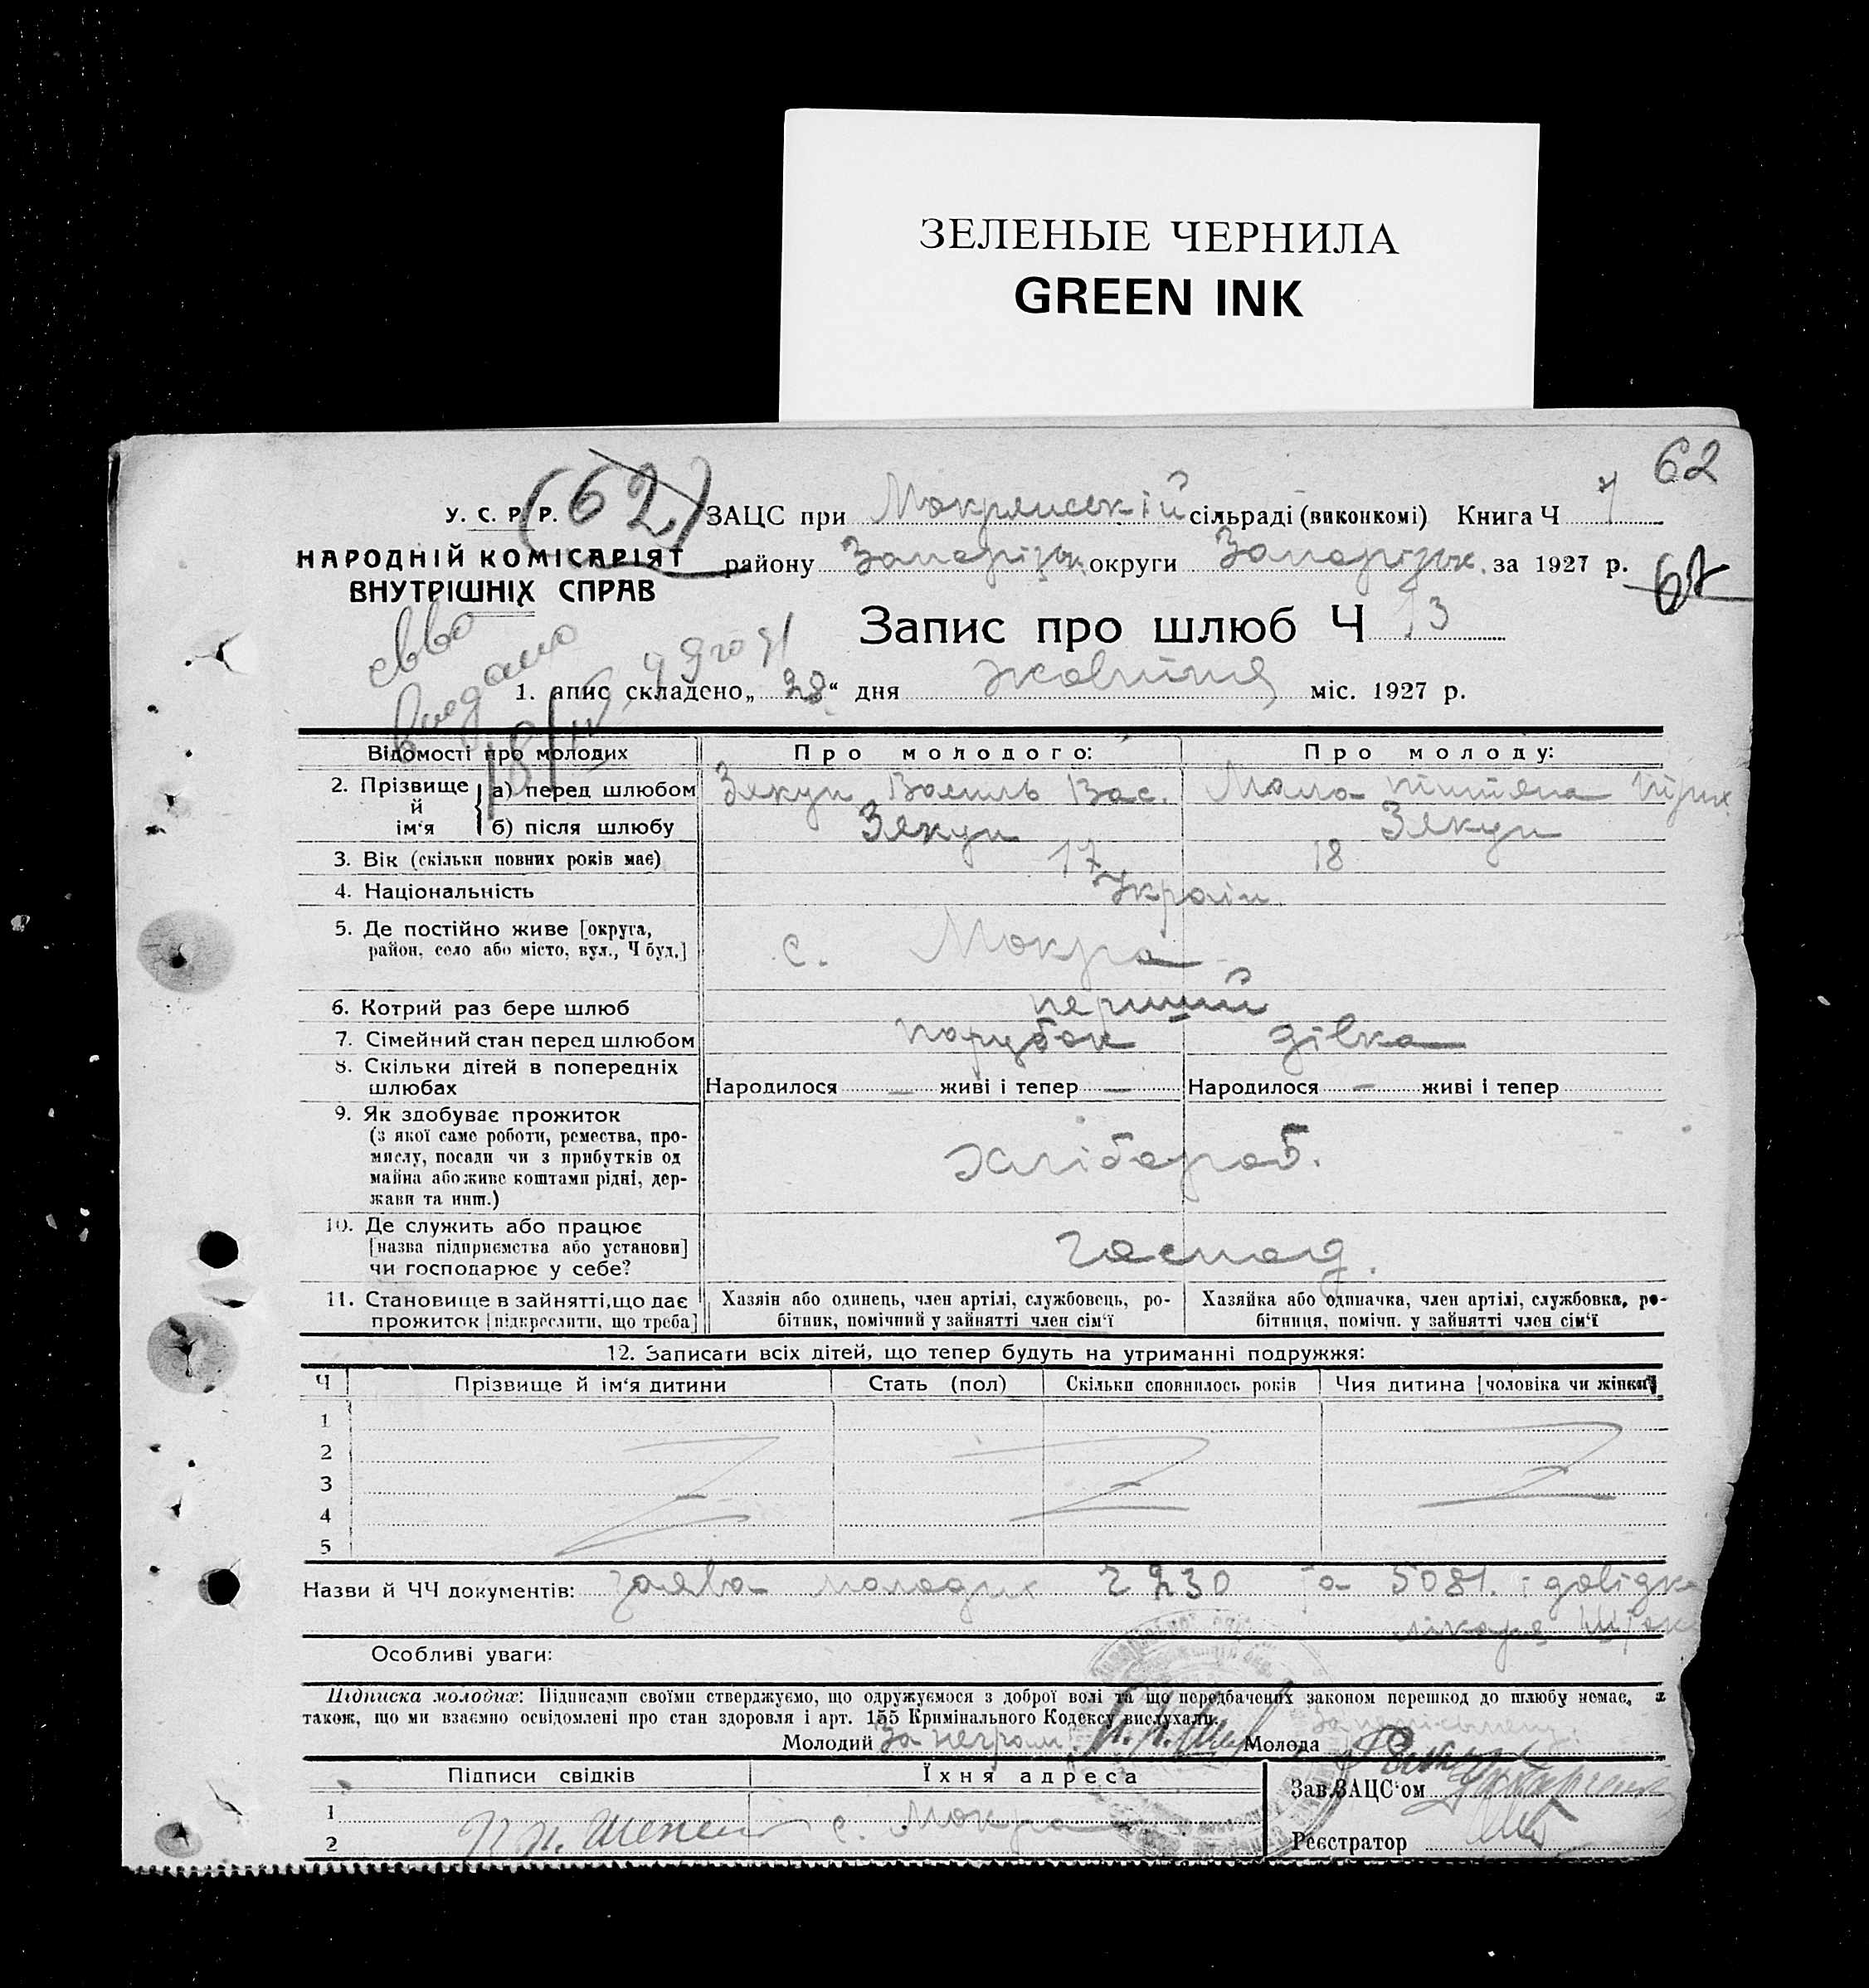 ЗЕЛЕНЫЕ ЧЕРНИЛА
GREEN INK
62
У. С. Р. Р.
(62)
ЗАЦС при Мокрянській сільраді (виконкомі) Книга Ч
НАРОДНІЙ КОМІСАРІЯТ
ВНУТРІШНІХ СПРАВ
району Запорізьк округи Запорізьк. за 1927 р.
Запис про шлюб Ч 13
1. апис складено „28“ дня жовтня міс. 1927 р.
Відомості про молодих
Про молодого:
Про молоду:
2. Прізвище й ім‘я
а) перед шлюбом
Зякун Василь Вас.
Мала
б) після шлюбу
Зякун
Зякун
3. Вік (скільки повних років має)
17
18
4. Національність
Україн
5. Де постійно живе [округа,
район, село або місто, вул., Ч буд.]
с. Мокра
6. Котрий раз бере шлюб
перший
7. Сімейний стан перед шлюбом
парубок
дівка
8. Скільки дітей в попередніх
шлюбах
Народилося — живі і тепер —
Народилося — живі і тепер
9. Як здобуває прожиток
(з якої саме роботи, ремества, про-
мислу, посади чи з прибутків од
майна або живе коштами рідні, дер-
жави та инш.)
хлібороб.
10. Де служить або працює
[назва підприємства або установи]
чи господарює у себе?
господ.
11. Становище в зайнятті,що дає
прожиток [підкреслити, що треба]
Хазяін або одинець, член артілі, службовець, ро-
бітник, помічний у зайнятті член сім‘ї
Хазяйка або одиначка, член артілі, службовка, ро-
бітниця, помічн. у зайнятті член сім‘ї
12. Записати всіх дітей, що тепер будуть на утриманні подружжя:
Ч
Прізвище й ім‘я дитини
Стать (пол)
Скільки сповнилось років
Чия дитина [чоловіка чи жінки]
1
2
3
4
5
Назви й ЧЧ документів: заява молодих 2230 та 5081. і довідка
лікаря
Особливі уваги:
Підписка молодих: Підписами своїми стверджуємо, що одружуємося з доброї волі та що передбачених законом перешкод до шлюбу немає, а
також, що ми взаємно освідомлені про стан здоровля і арт. 155 Кримінального Кодексу вислухали.
Молодий за неграм.
Молода
Підписи свідків
Їхня адреса
Зав.ЗАЦС‘ом
1
с. Мокра
2
Реєстратор